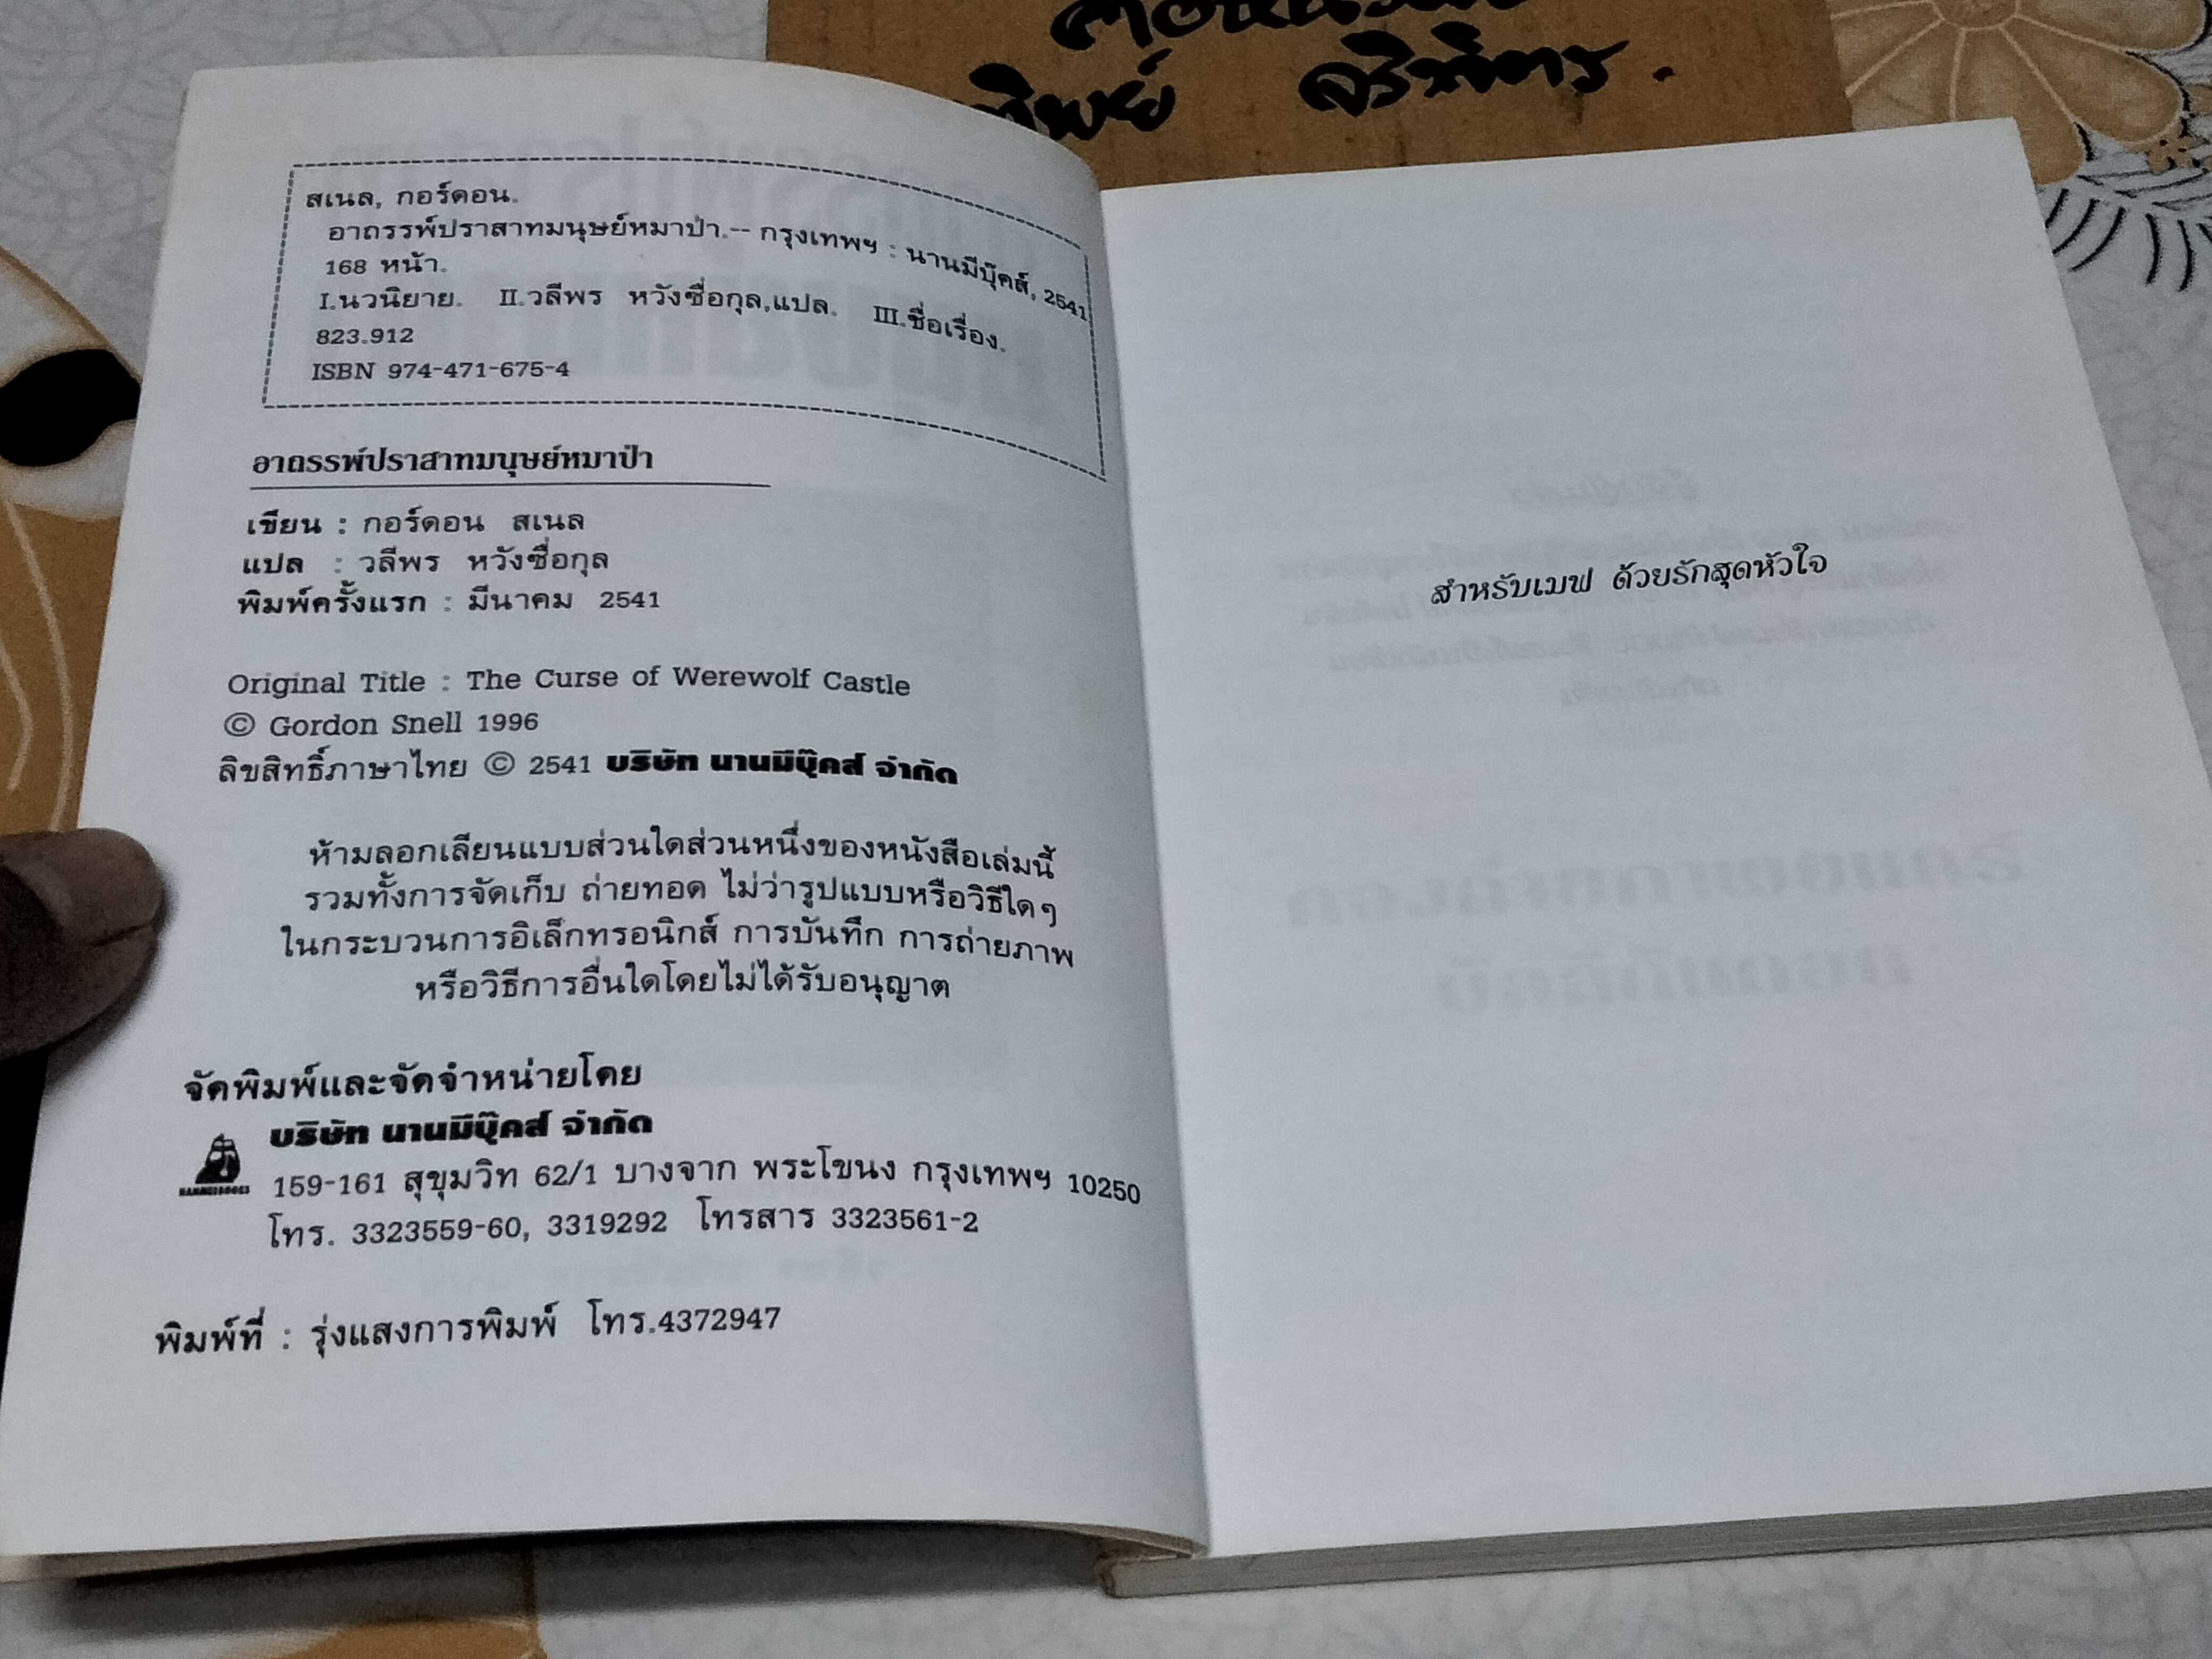 ทิพย์
สเนล, กอร์ดอน.
อาถรรพ์ปราสาทมนุษย์หมาป่า.-- กรุงเทพฯ : นานมีบุ๊คส์, 2541
168 หน้า.
I.นวนิยาย. II.วลีพร หวังซื่อกุล,แปล. III.ชื่อเรื่อง.
823.912
ISBN 974-471-675-4
อาถรรพ์ปราสาทมนุษย์หมาป่า
เขียน : กอร์ดอน สเนล
แปล : วลีพร หวังซื่อกุล
พิมพ์ครั้งแรก : มีนาคม 2541
Original Title : The Curse of Werewolf Castle
© Gordon Snell 1996
ลิขสิทธิ์ภาษาไทย © 2541 บริษัท นานมีบุ๊คส์ จำกัด
ห้ามลอกเลียนแบบส่วนใดส่วนหนึ่งของหนังสือเล่มนี้
รวมทั้งการจัดเก็บ ถ่ายทอด ไม่ว่ารูปแบบหรือวิธีใดๆ
ในกระบวนการอิเล็กทรอนิกส์ การบันทึก การถ่ายภาพ
หรือวิธีการอื่นใดโดยไม่ได้รับอนุญาต
จัดพิมพ์และจัดจำหน่ายโดย
บริษัท นานมีบุ๊คส์ จำกัด
NANMEEBOOKS
159-161 สุขุมวิท 62/1 บางจาก พระโขนง กรุงเทพฯ 10250
โทร. 3323559-60, 3319292 โทรสาร 3323561-2
พิมพ์ที่ : รุ่งแสงการพิมพ์ โทร.4372947
สำหรับเมฟ ด้วยรักสุดหัวใจ